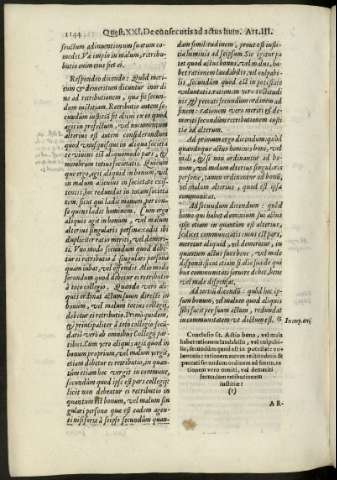 1144 Quæst. XXI. De consecutis ad actus hum. Art. III.
fructum adinuentionum suarum co-
medet. Væ impio in malum, retribu-
tio enim eius fiet ei.
Respondeo dicendo: Quòd meri-
tum & demeritum dicuntur in ordi-
ne ad retributionem, quæ fit secun-
dum iustitiam. Retributio autem se-
cundum iustitiam fit alicui ex eo quòd
agit in profectum, vel nocumentum
alterius est autem considerandum
quòd vnusquisque in aliqua societa-
te viuens est aliquo modo pars, &
membrum totius societatis. Quicun-
que ergo agit aliquid in bonum, vel
in malum alicuius in societate exi-
stentis, hoc redundat in totam societa-
tem: sicut qui lædit manum, per con-
sequens lædit hominem. Cum ergo
aliquis agit in bonum, vel malum
alterius singularis personæ, est ibi
dupliciter ratio meriti, vel demeri-
ti. Vno modo secundum quòd debe-
tur ei retributio à singulari persona
quam iuuat, vel offendit. Alio modo
secundum quòd debetur ei retributio
à toto collegio. Quando verò ali-
quis ordinat actum suum directè in
bonum, vel malum totius collegij,
debetur ei retributio. Primò quidem,
& principaliter à toto collegio: secū-
dariò verò ab omnibus Collegij par-
tibus. Cum verò aliquis agit quod in
bonum proprium, vel malum vergit,
etiam debetur ei retributio, in quan-
tum etiam hoc vergit in commune,
secundùm quòd ipse est pars collegij:
licèt non debeatur ei retributio in
quantum est bonum, vel malum sin-
gularis personæ quæ est eadem agen-
ti, nisi fortè à seipso secundùm quan-
dam similitudinem, prout est iusti-
tia hominis ad seipsum. Sic igitur pa-
tet quòd actus bonus, vel malus, ha-
bet rationem laudabilis, vel culpabi-
lis, secundùm quòd est in potestate
voluntatis: rationem verò rectitudi-
nis & peccati, secundùm ordinem ad
finem: rationem verò meriti, & de-
meriti secundùm retributionem iusti-
tiæ ad alterum.
Ad primum ergo dicendum: quòd
quandoque actus hominis boni, vel
mali, & si non ordinantur ad bo-
num, vel malum alterius singularis
personæ, tamen ordinantur ad bonū,
vel malum alterius, quod est ipsa
communitas.
Ad secundum dicendum: quòd
homo qui habet dominium sui actus
ipse etiam in quantum est alterius,
scilicet communitatis cuius est pars,
meretur aliquid, vel demeretur, in
quantum actus suos bene, vel malè
disponit: sicut etiam si alia sua de qui-
bus communitati seruire debet, bene
vel malè dispenset.
Ad tertium dicendū: quòd hoc ip-
sum bonum, vel malum quod aliquis
sibi facit per suum actum, redundat
in communitatem vt dictum est. In corp. arti.
Conclusio sit. Actus bonus, vel malus
habet rationem laudabilis, vel culpabi-
lis, secundùm quod est in potestate vo-
luntatis: rationem autem rectitudinis &
peccati secundum ordinem ad finem: ra-
tionem verò meriti, vel demeriti
secundum retributionem
iustitiæ:
(?)
AR-